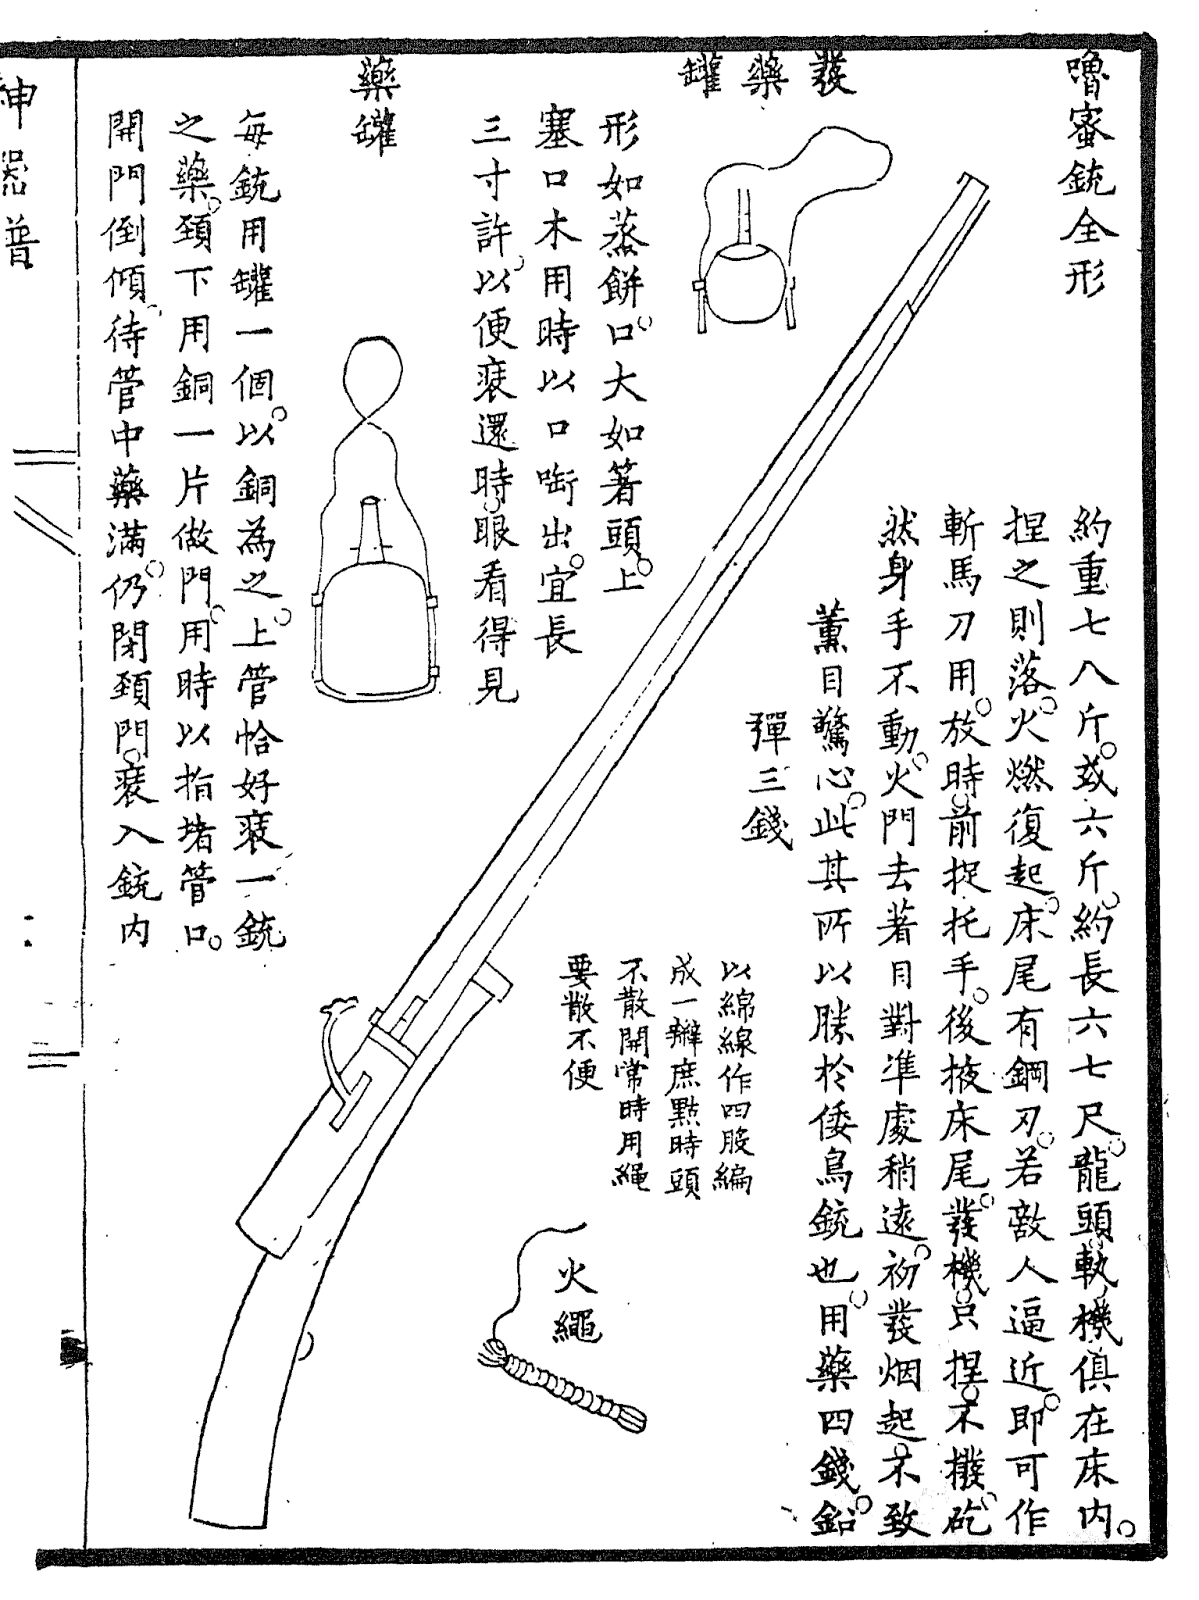 嚕蜜銃全形
約重七八斤。或六斤。約長六七尺。龍頭軌機俱在床内。
捏之則落。火燃復起。床尾有鋼刃。若敵人逼近。即可作
斬馬刀用。放時。前捉托手。後掖床尾。發機。只捏。不撥。砣
然身手不動。火門去著目對準處稍遠。初發烟起。不致
薰目驚心。此其所以勝於倭鳥銃也。用藥四錢。鉛
彈三錢
發藥罐
形如蒸餅。口大如箸頭。上
塞口木用時以口啣出。宜長
三寸許。以便裝還時。眼看得見
以綿線作四股編
成一辮庶點時頭
不散開常時用繩
要散不便
火繩
藥罐
每銃用罐一個。以銅為之。上管恰好裝一銃
之藥。頸下用銅一片做門。用時以指堵管口。
開門倒傾。待管中藥滿。仍閉頸門。裝入銃内
神器譜